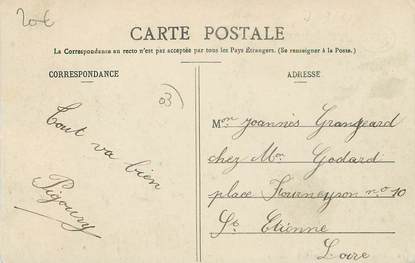 20€
CARTE POSTALE
La Correspondance au recto n'est pas acceptée par tous les Pays Étrangers. (Se renseigner à la Poste.)
CORRESPONDANCE
ADRESSE
03
Tout va bien
Pigoury
Mon Joannès Grangeard
chez Mon Godard
place Fourneyron no 10
St Etienne
Loire